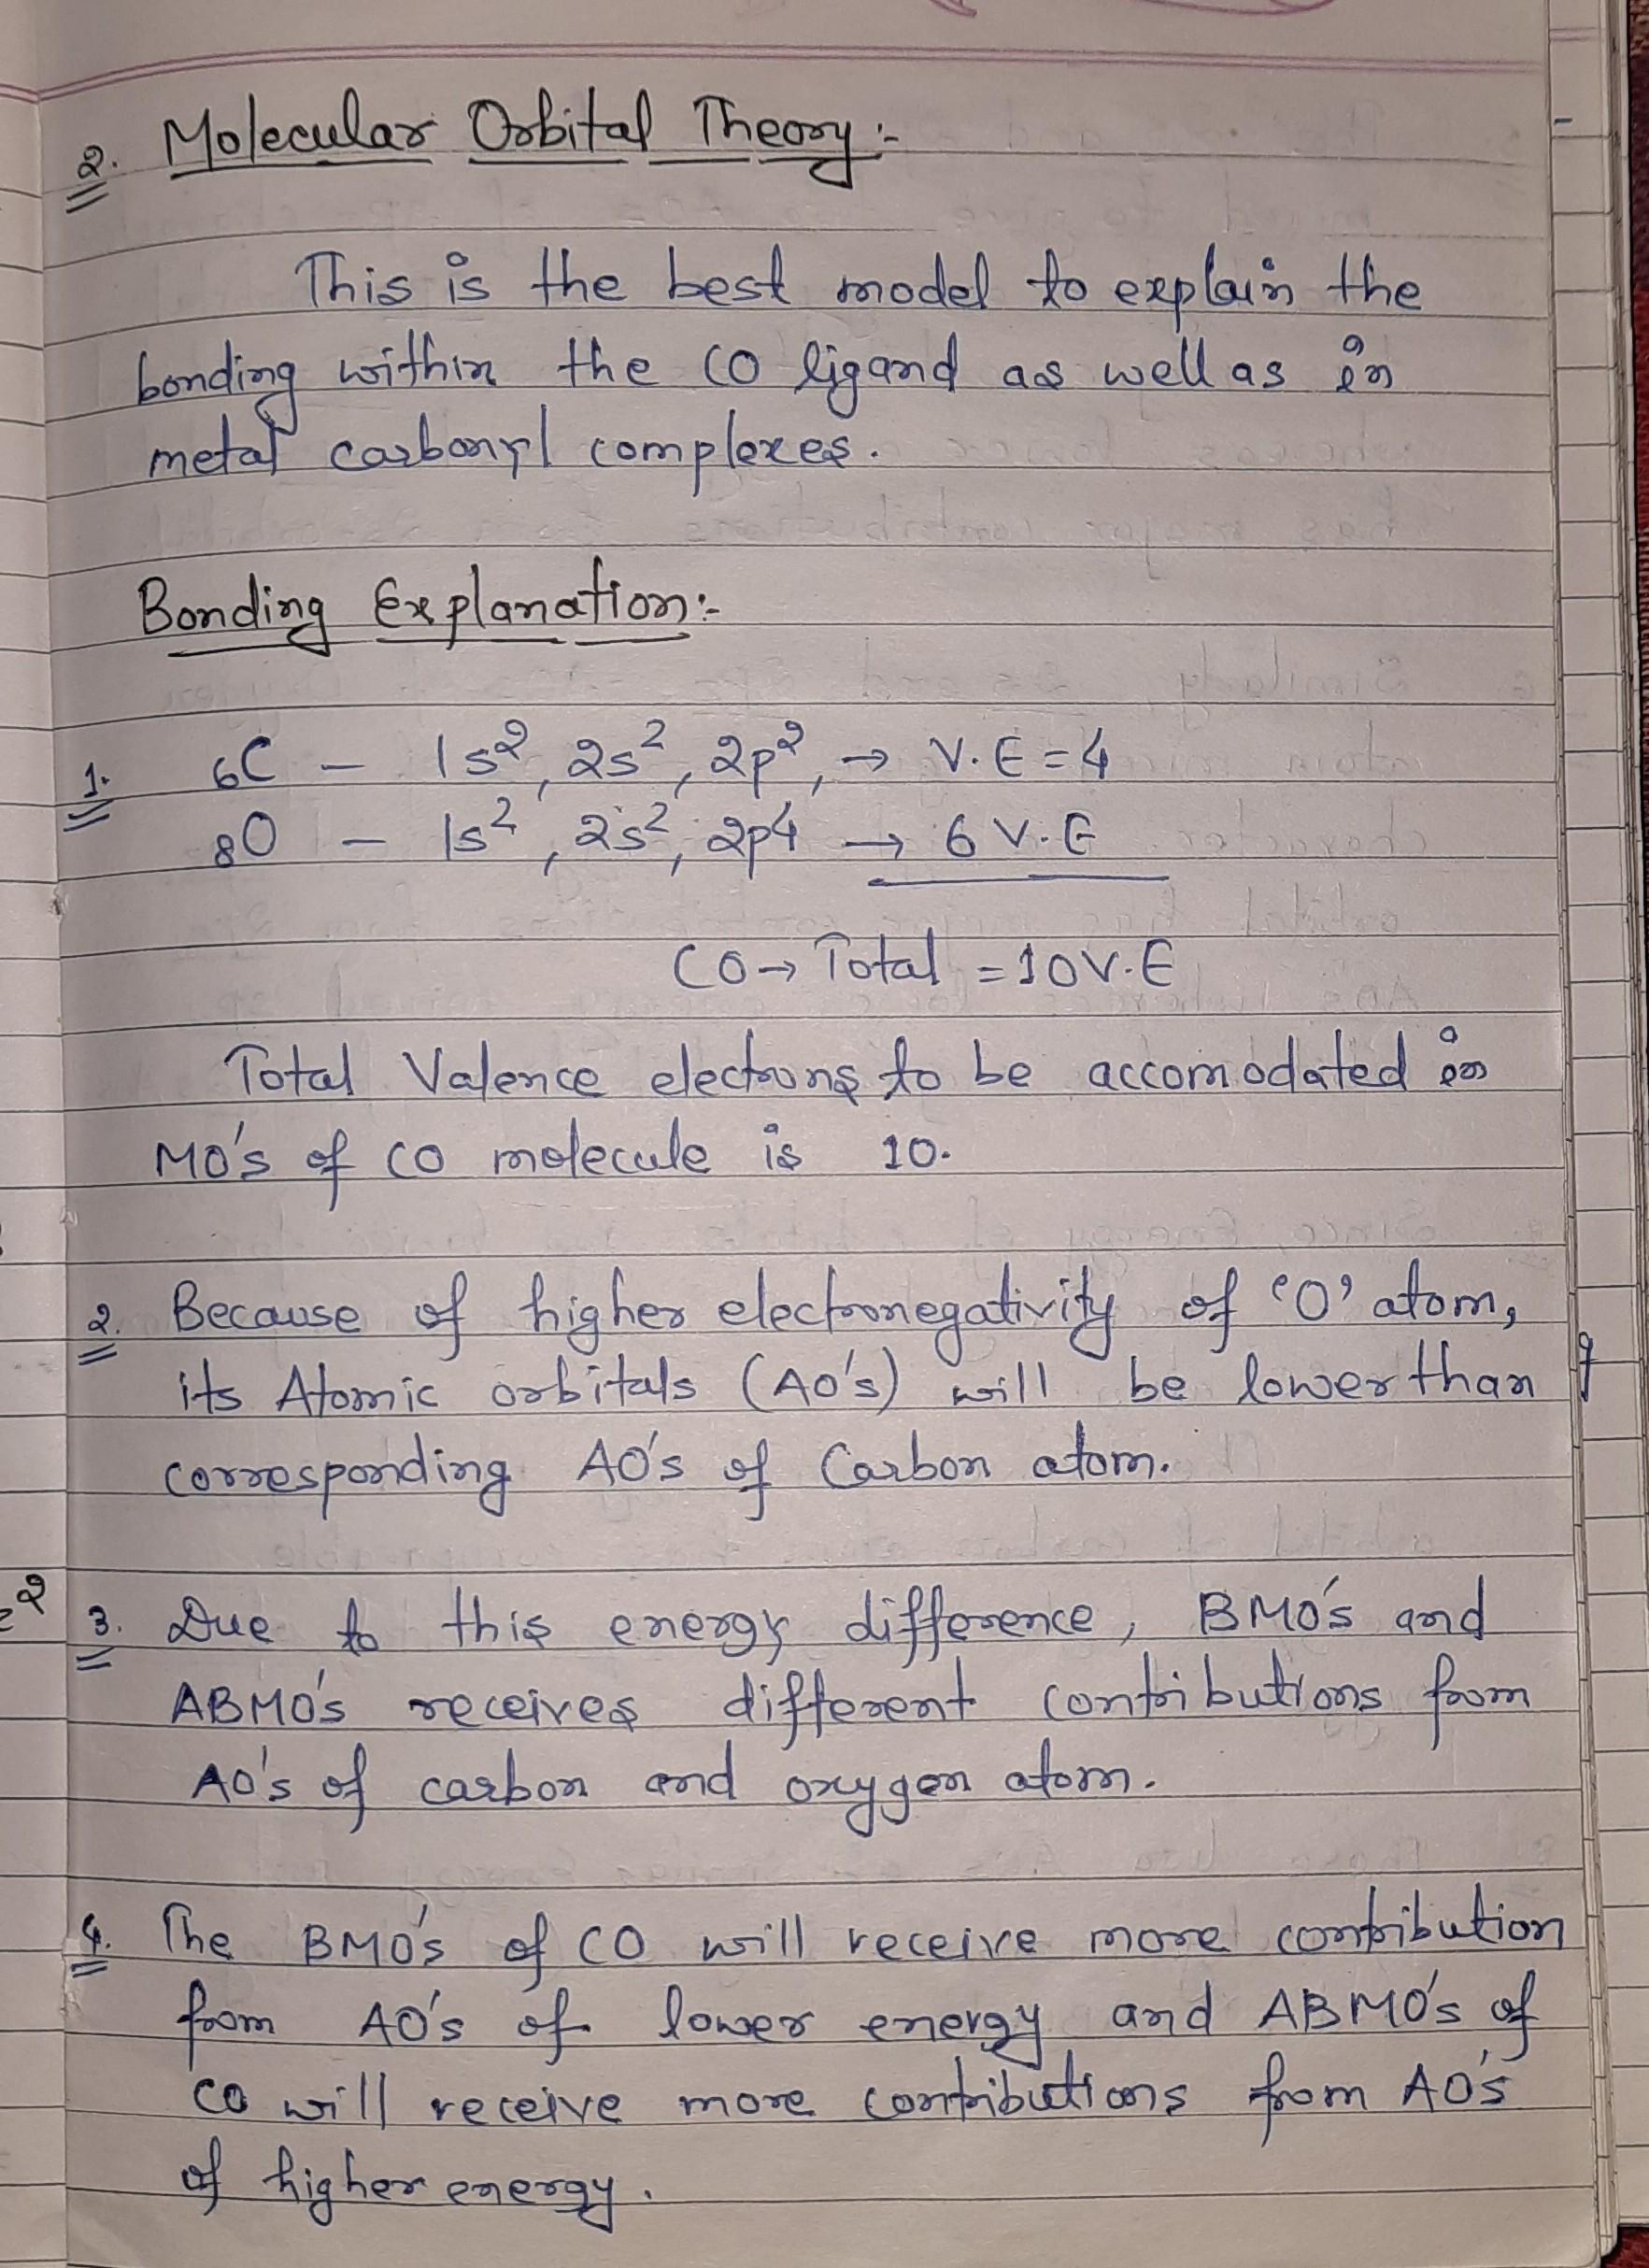 2. Molecular Orbital Theory:-
This is the best model to explain the
bonding within the CO ligand as well as in
metal carbonyl complexes.
Bonding Explanation:-
1. ₆C - 1s², 2s², 2p², → V.E = 4
₈O - 1s², 2s², 2p⁴ → 6 V.E
CO → Total = 10 V.E
Total Valence electrons to be accomodated in
MO's of CO molecule is 10.
2. Because of higher electronegativity of 'O' atom,
its Atomic orbitals (AO's) will be lower than
corresponding AO's of Carbon atom.
3. Due to this energy difference, BMO's and
ABMO's receives different contributions from
AO's of carbon and oxygen atom.
4. The BMO's of CO will receive more contribution
from AO's of lower energy and ABMO's of
CO will receive more contributions from AO's
of higher energy.